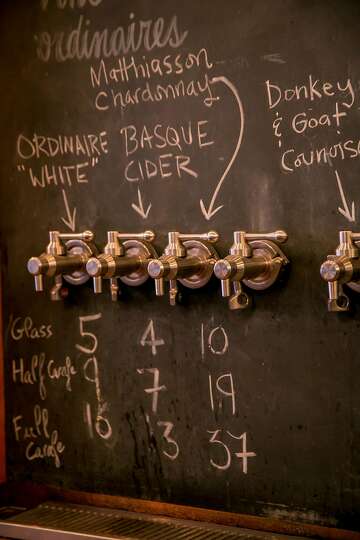 Vins
ordinaires
Matthiasson
Chardonnay
ORDINAIRE
"WHITE"
BASQUE
CIDER
Donkey
& Goat
Counoise
Glass 5 4 10
Half Carafe 9 7 19
Full Carafe 16 13 37